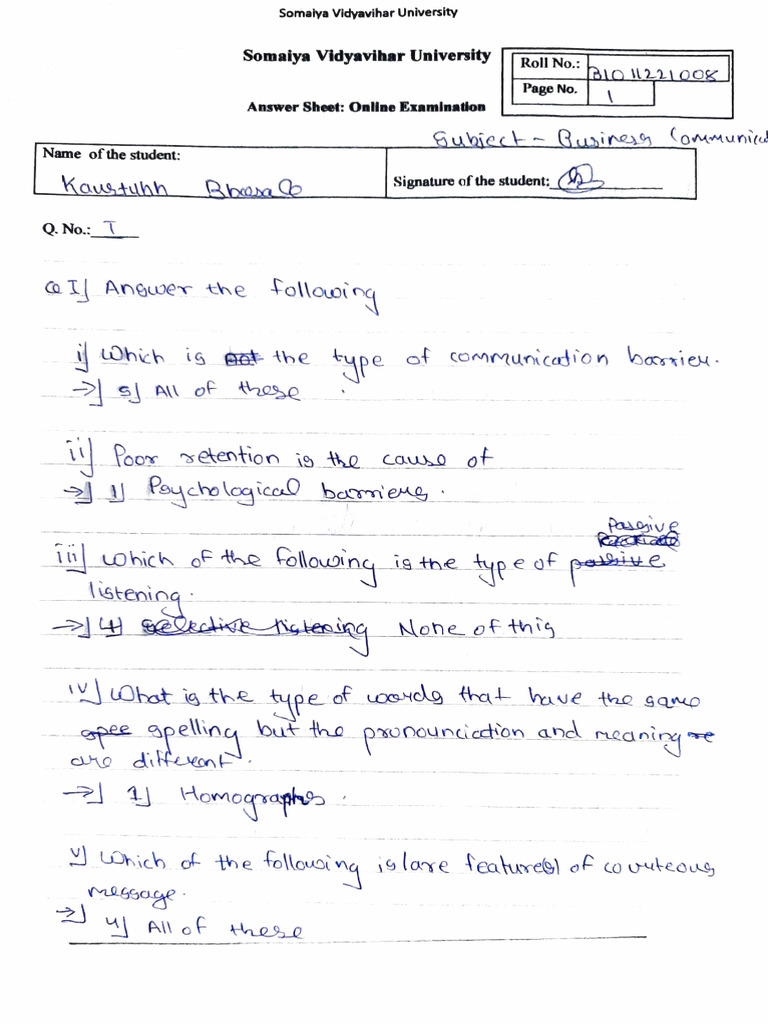 Somaiya Vidyavihar University
Somaiya Vidyavihar University
Roll No.: 31011221008
Page No. 1
Answer Sheet: Online Examination
Subject - Business Communica
Name of the student:
Kaustubh
Signature of the student:
Q. No.: I
Q I] Answer the following
i] Which is not the type of communication barrier.
→] 5] All of these .
ii] Poor retention is the cause of
→] 1] Psychological barriers.
Passive
iii] Which of the following is the type of passive
listening.
→] 4] selective listening None of this
iv] What is the type of words that have the same
spee spelling but the pronounciation and meaning re
are different.
→] 1] Homographs.
v] Which of the following is/are feature(s) of couteous
message.
→] 4] All of these